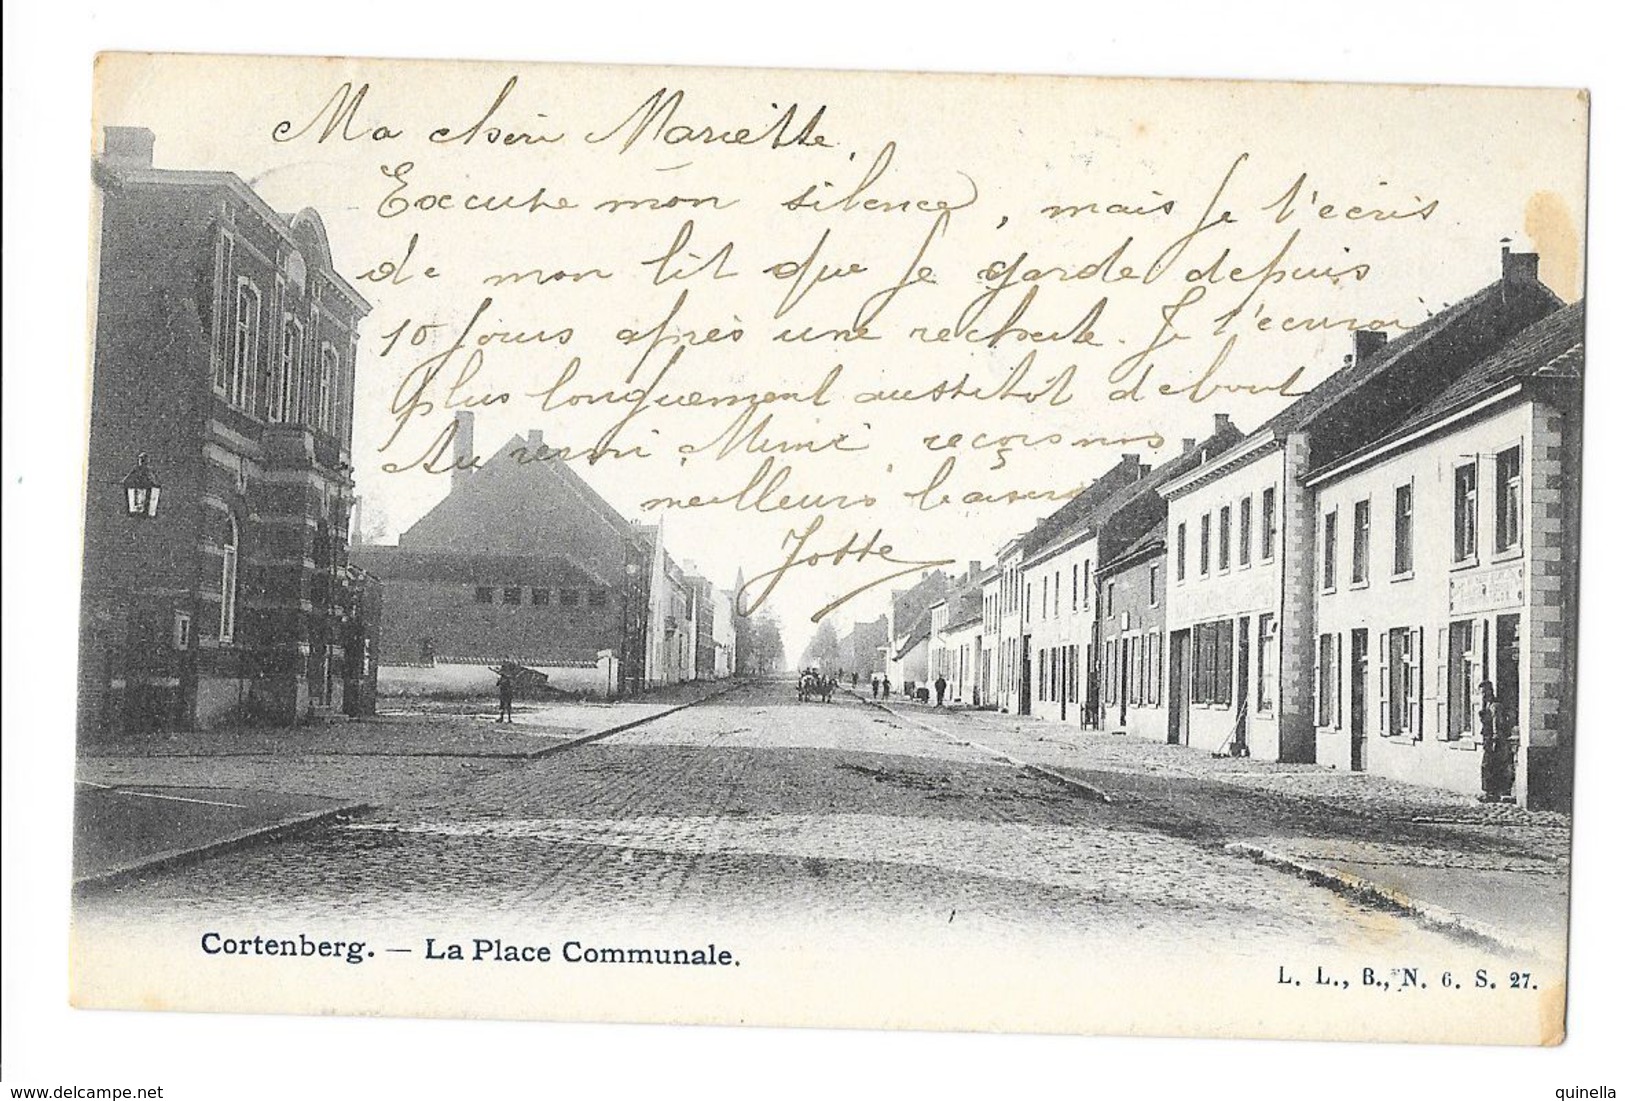 Ma chèri Mariette,
Excuse mon silence, mais je t'écris
de mon lit que je garde depuis
10 jours après une rechute. Je t'écrirai
plus longuement aussitôt debout
Au revoir Mimi, reçois mes
meilleurs baisers
Jotte
Cortenberg. — La Place Communale.
L. L., B., N. 6. S. 27.
delcampe.net
quinella